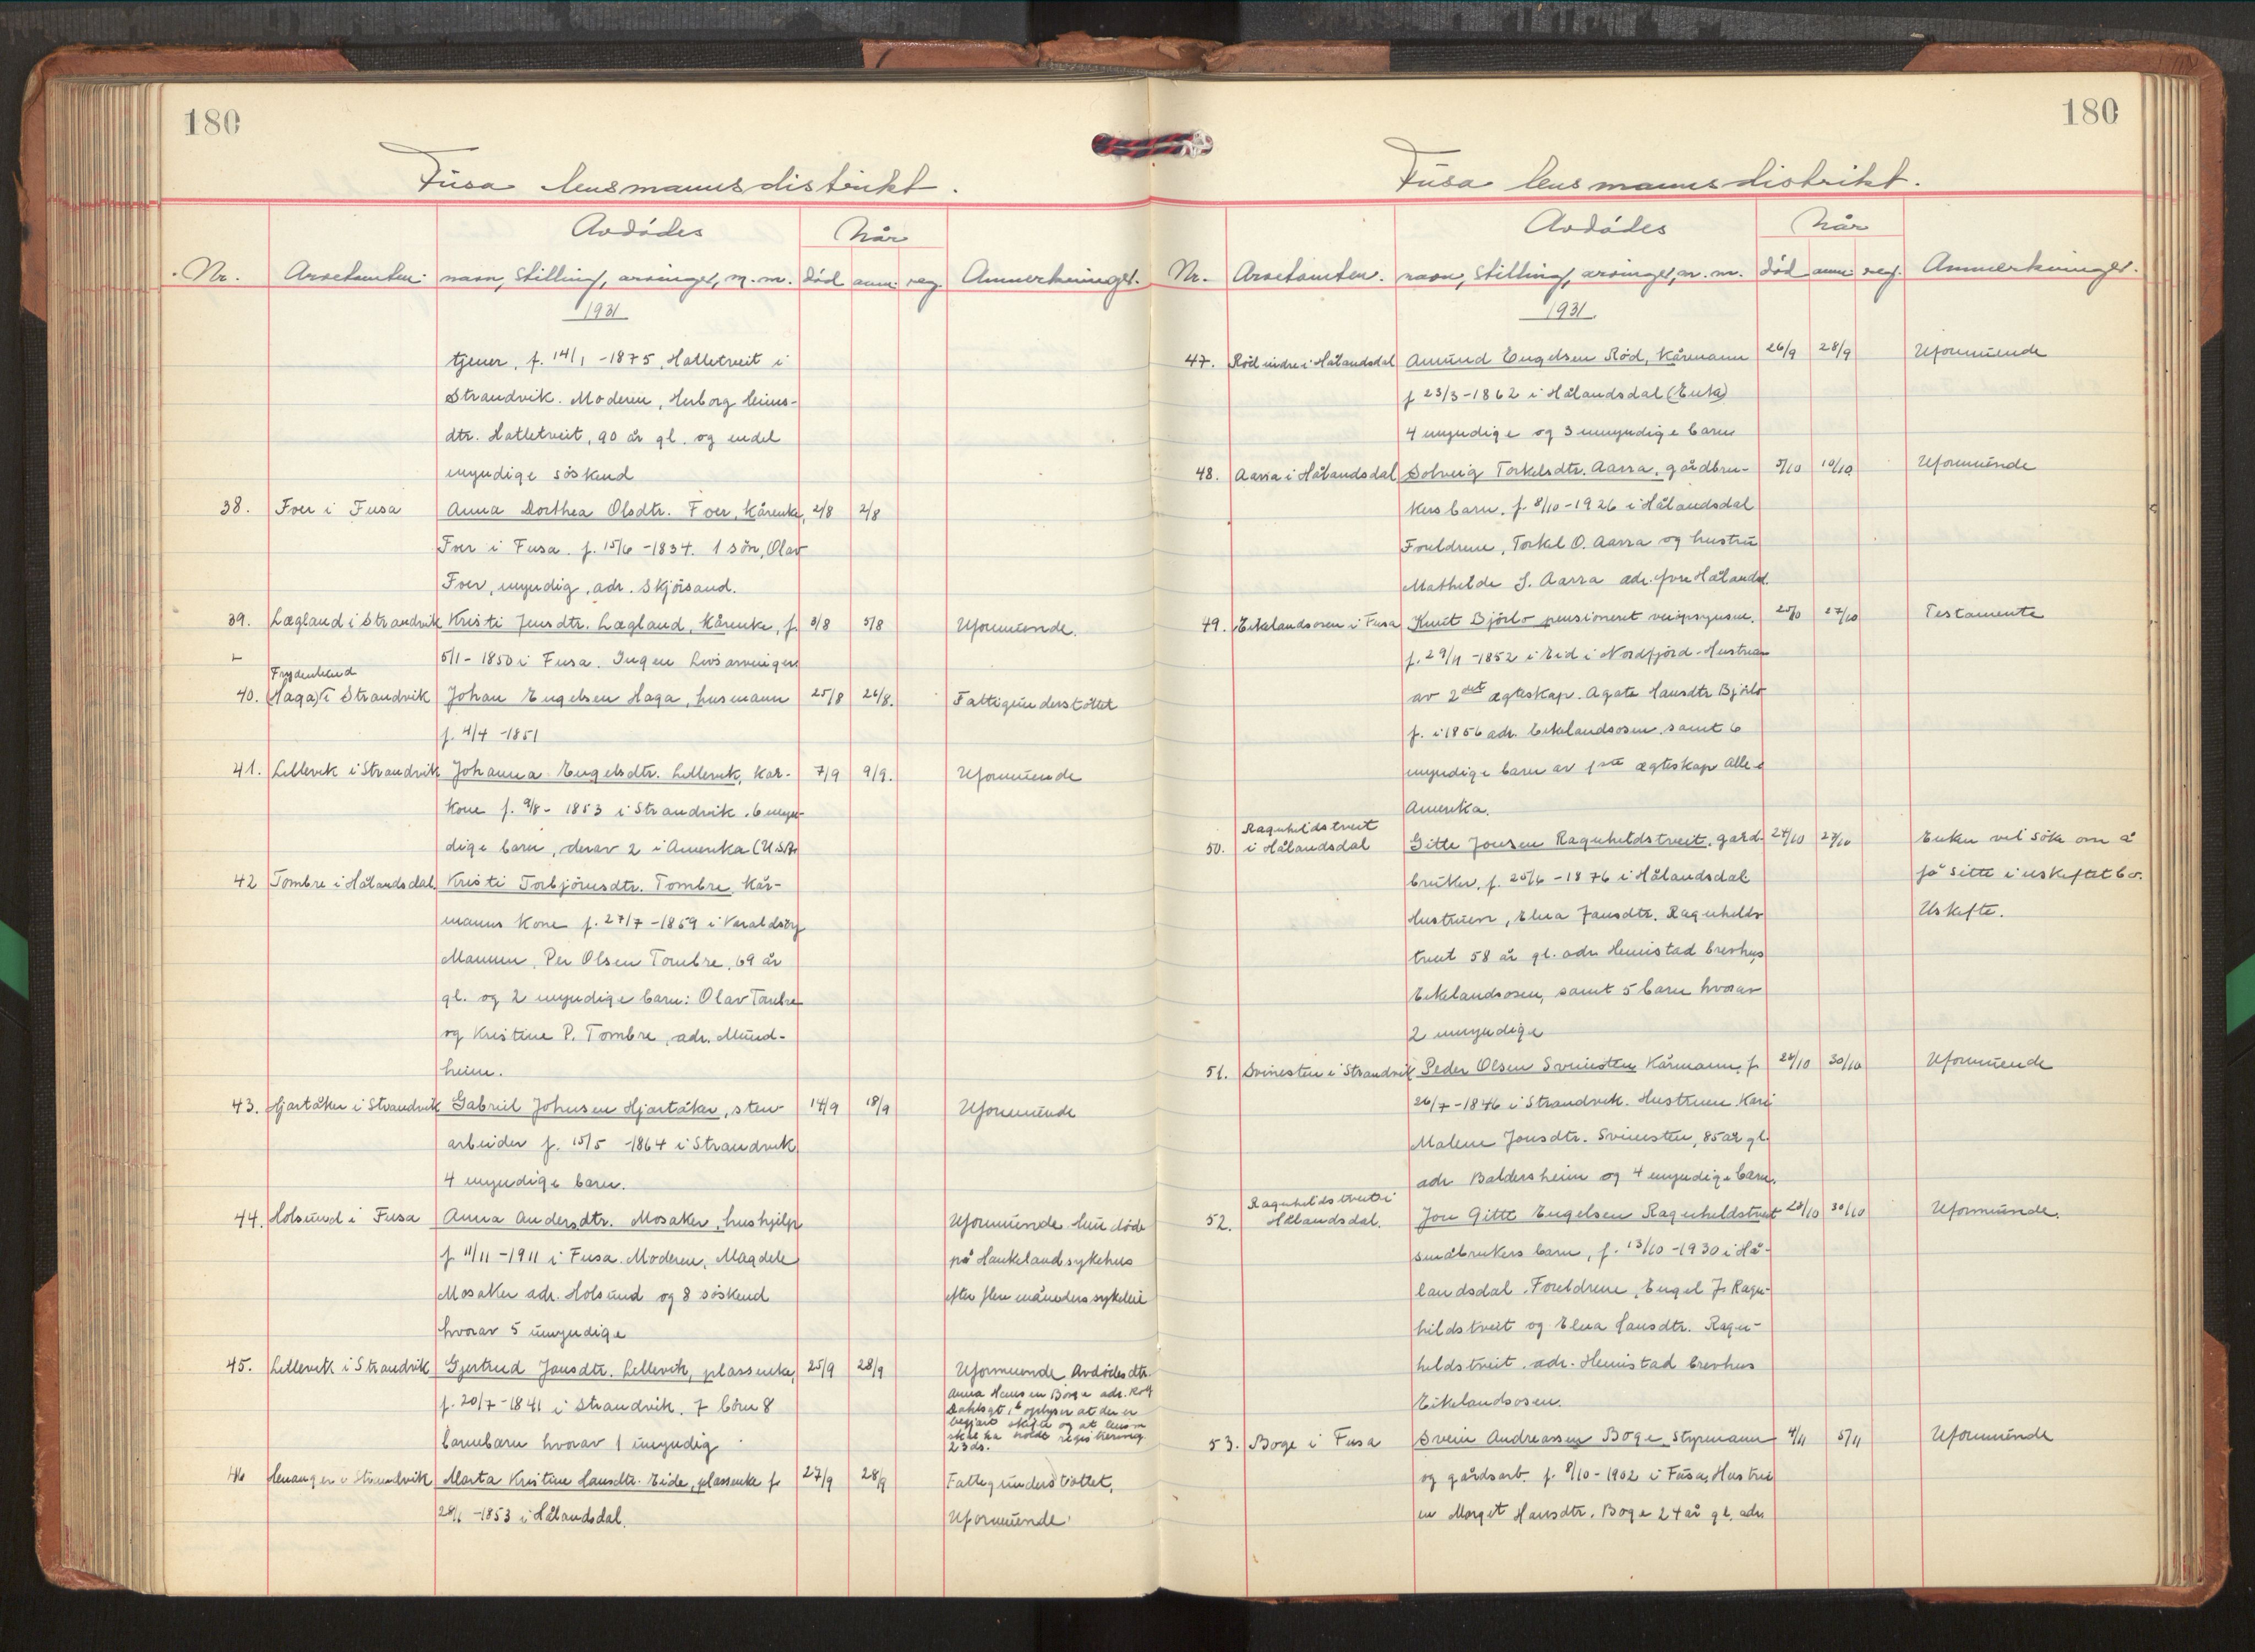 180
Fusa lensmannsdistrikt.
Avdödes
Når
Nr. Arvetomten. navn, stilling, arvinger, m.m. död anm. reg. Anmerkninger.
1931
tjener, f. 14/1 -1875, Hatletveit i
Strandvik. Moderen, Herborg
dtr. Hatletveit, 90 år gl. og endel
myndige söskend
38. Foer i Fusa Anna Dorthea Olsdtr. Foer, kårenke, 2/8 2/8
Foer i Fusa. f. 15/6 -1834. 1 sön, Olav
Foer, myndig, adr. Skjörsand.
39. Lægland i Strandvik Kristi Jensdtr. Lægland, kårenke, f. 3/8 5/8 Uformuende.
5/1 - 1850 i Fusa. Ingen livsarvinger
Frydenlund
40. (Haga) i Strandvik Johan Engelsen Haga, husmann 25/8 26/8. Fattigunderstöttet
f. 4/4 -1851
41. Lillevik i Strandvik Johanna Engelsdtr. Lillevik, kår- 7/9 9/9. Uformuende
kone f. 9/8 - 1853 i Strandvik. 6 myn-
dige barn, derav 2 i Amerika (U.S.A.
42 Tombre i Hålandsdal Kristi Torbjörnsdtr. Tombre, kår-
manns kone f. 27/7 -1859 i Varaldsöy
Mannen, Per Olsen Tombre, 69 år
gl. og 2 myndige barn: Olav Tombre
og Kristine P. Tombre, adr. Mund-
heim.
43. Hjartåker i Strandvik Gabriel Johnsen Hjartåker, sten- 14/9 18/9 Uformuende
arbeider f. 15/5 -1864 i Strandvik
4 myndige barn.
44. Holsund i Fusa Anna Andersdtr. Mosaker, hushjelp Uformuende. Hun döde
f. 11/11 -1911 i Fusa. Moderen, Magdele på Haukeland sykehus
Mosaker adr. Holsund og 8 söskend efter flere måneders sykeleie
hvorav 5 umyndige
45. Lillevik i Strandvik Gjertrud Jansdtr. Lillevik, plassenke, 25/9 28/9 Uformuende. Avdödes dtr.
f. 20/7 -1841 i Strandvik. 7 börn 8 Anna Hansen Börge adr. Rolf
Dahlsgt. 6 oplyser at der er
barnebarn hvorav 1 umyndig begjært skifte og at lensm
skal ha holdt registrering
23ds.
46 Henanger i Strandvik Marta Kristine Hansdtr. Eide, plassenke f. 27/9 28/9 Fattigunderstöttet,
28/1 -1853 i Hålandsdal. Uformuende.
180
Fusa lensmannsdistrikt.
Avdödes
Når
Nr. Arvetomten. navn, stilling, arvinger, m. m. död anm. reg. Anmerkninger.
1931.
47. Röd indre i Hålandsdal Amund Engelsen Röd, kårmann 26/9 28/9 Uformuende
f 23/3 -1862 i Hålandsdal (Enke)
4 myndige og 3 umyndige barn
48. Aarra i Hålandsdal Solveig Torkelsdtr. Aarra, gårdbru- 5/10 10/10 Uformuende
kers barn. f. 8/10 -1926 i Hålandsdal
Foreldrene, Torkel O. Aarra og hustru
Mathilde S. Aarra adr. Övre Hålandsd.
49. Eikelandsosen i Fusa Knut Björlo pensioneret veiopsynsm. 25/10 27/10 Testamente
f. 29/11 -1852 i Eid i Nordfjord. Hustruen
av 2det ægteskap. Agate Hansdtr. Björlo
f. i 1856 adr. Eikelandsosen, samt 6
myndige barn av 1ste ægteskap alle i
Amerika.
Ragnhildstveit
50. i Hålandsdal Gitle Jonsen Ragnhildstveit, gård- 24/10 27/10 Enken vil söke om å
bruker, f. 25/6 -1876 i Hålandsdal få sitte i uskiftet bo.
Hustruen, Elna Jansdtr. Ragnhilds- Uskifte.
tveit 58 år gl. adr. Henistad brevhus
Eikelandsosen, samt 5 barn hvorav
2 umyndige
51. Svinesten i Strandvik Peder Olsen Svinesten kårmann, f. 26/10 30/10 Uformuende
26/7 -1846 i Strandvik. Hustruen Kari
Malene Jonsdtr. Svinesten, 85 år gl.
adr. Baldersheim og 4 myndige barn.
Ragnhildstveit i
52. Hålandsdal. Jon Gitle Engelsen Ragnhildstveit 28/10 30/10 Uformuende.
småbrukers barn, f. 13/10 -1930 i Hå-
landsdal. Foreldrene, Engel J. Ragn-
hildstveit og Elna Hansdtr. Ragn-
hildstveit. adr. Henistad brevhus
Eikelandsosen.
53. Boge i Fusa Svein Andreassen Boge, styrmann 4/11 5/11 Uformuende
og gårdsarb. f. 8/10 - 1902 i Fusa. Hustru
en Marget Hansdtr. Boge 24 år gl. adr.